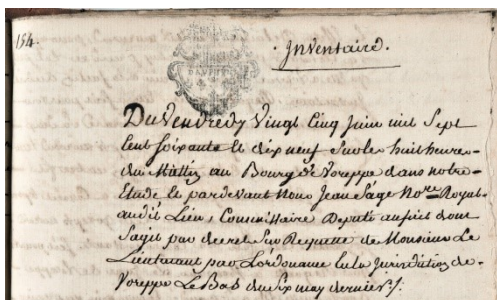 154.
Inventaire.
Du Vendredy Vingt Cinq Juin mil Sept
Cent soixante et dix neuf sur les huit heures
du Mattin au Bourg de Voreppe dans notre
Etude et pardevant Nous Jean Sage No.re Royal
audit Lieu, Commissaire Deputé au fait dont
Sagit par decret Sur Requette de Monsieur Le
Lieutenant par Lordonance en la Jurisdiction de
Voreppe Le Bas du Six may dernier